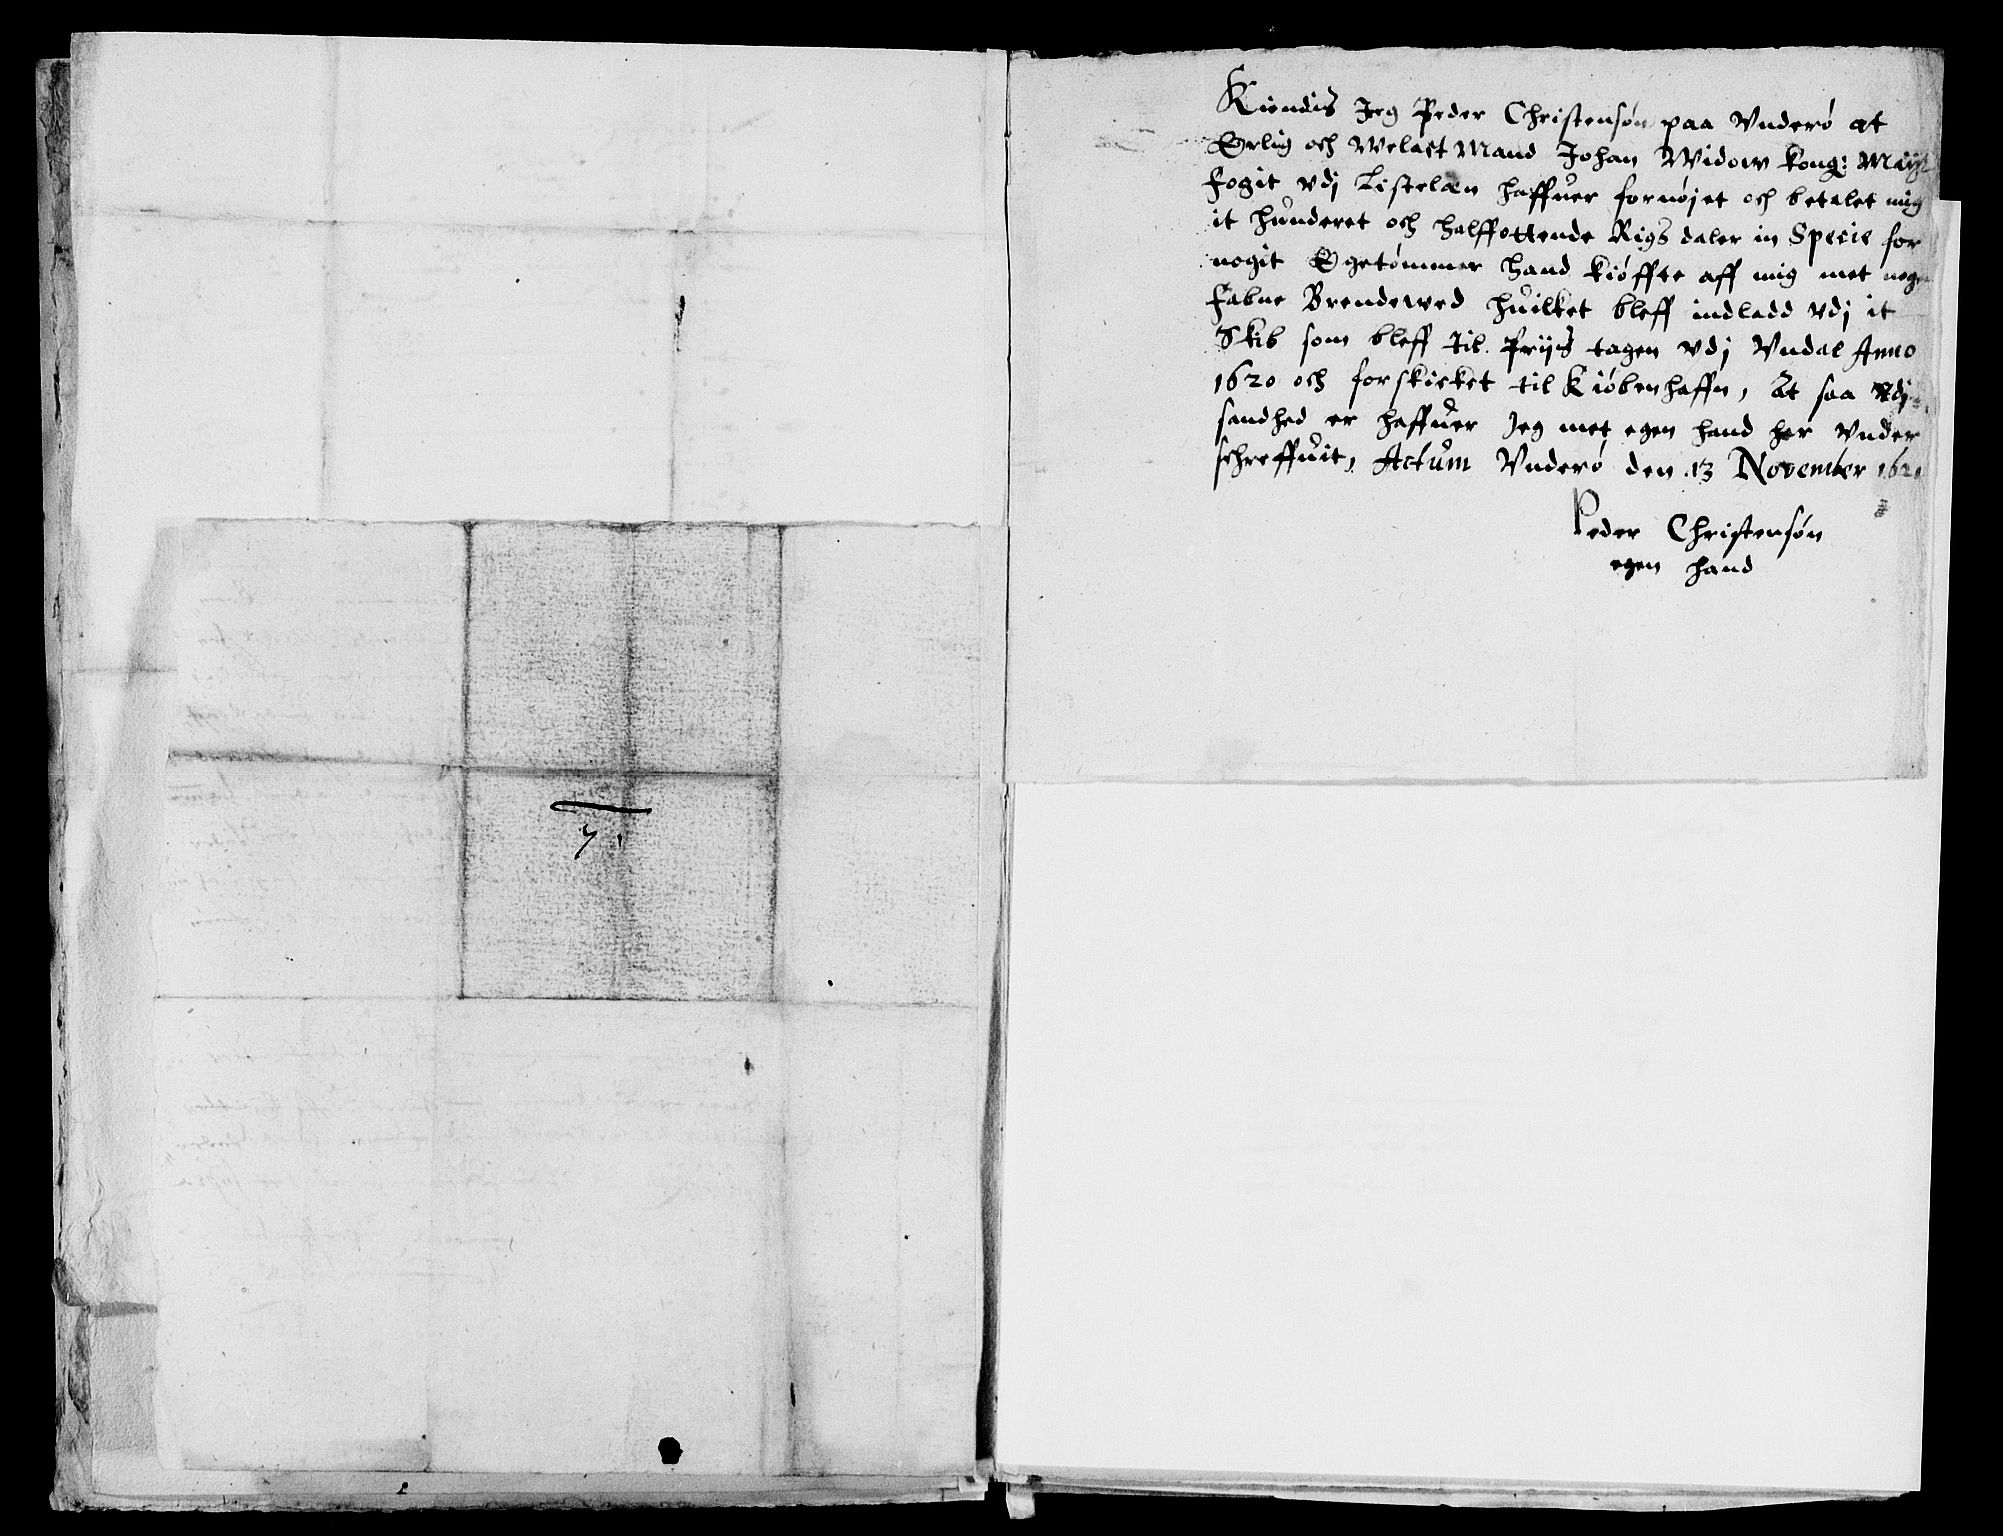 71
Kiendis Jeg Peder Christensøn paa Vnderø at
Erlig och Welact Mand Johan Widow kong: Maytt
fogit vdj Listelæn haffuer fornøjet och betalet mig
it hunderet och halffottende Rigs daler in Specie for
nogit Egetømmer hand kiøffte aff mig met nogen
fabne Brendewed huilket bleff indladd vdj it
Skib som bleff til Priis tagen vdj Vndal Anno
1620 och forskicket til Kiøbenhaffn, At saa vdj
sandhed er haffuer Jeg met egen hand her vnder
schreffuit, Actum Vnderø den 13 November 1621
Peder Christensøn
egen hand